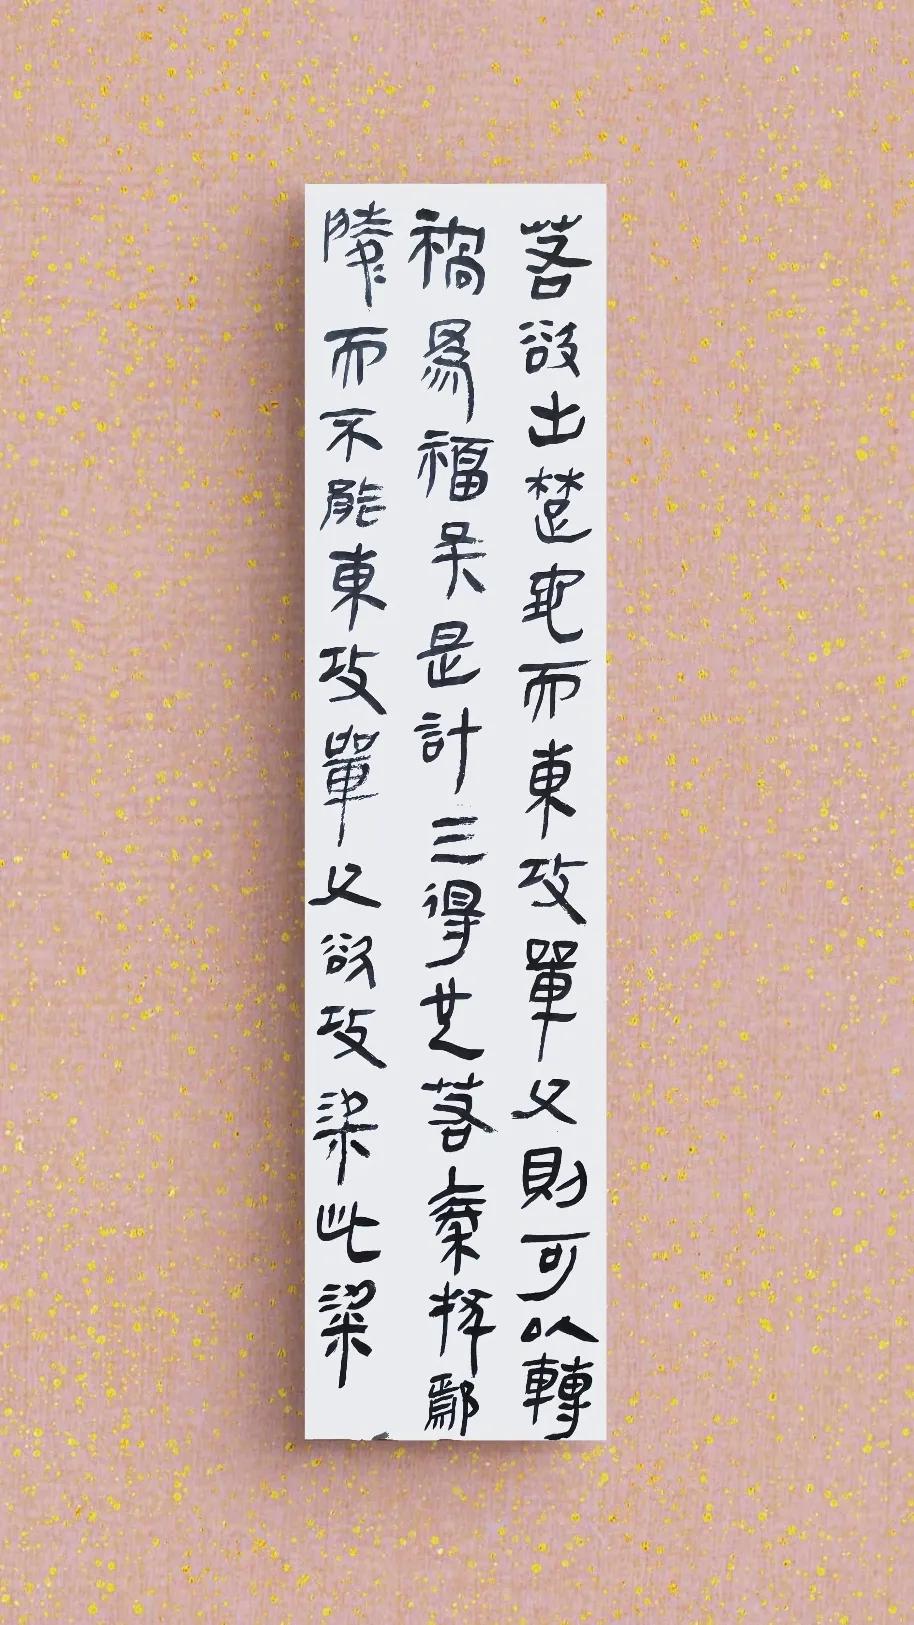 若欲出楚地而東攻單父則可以轉
禍爲福矣是計三得也若秦拔鄢
陵而不能東攻單父欲攻梁此梁